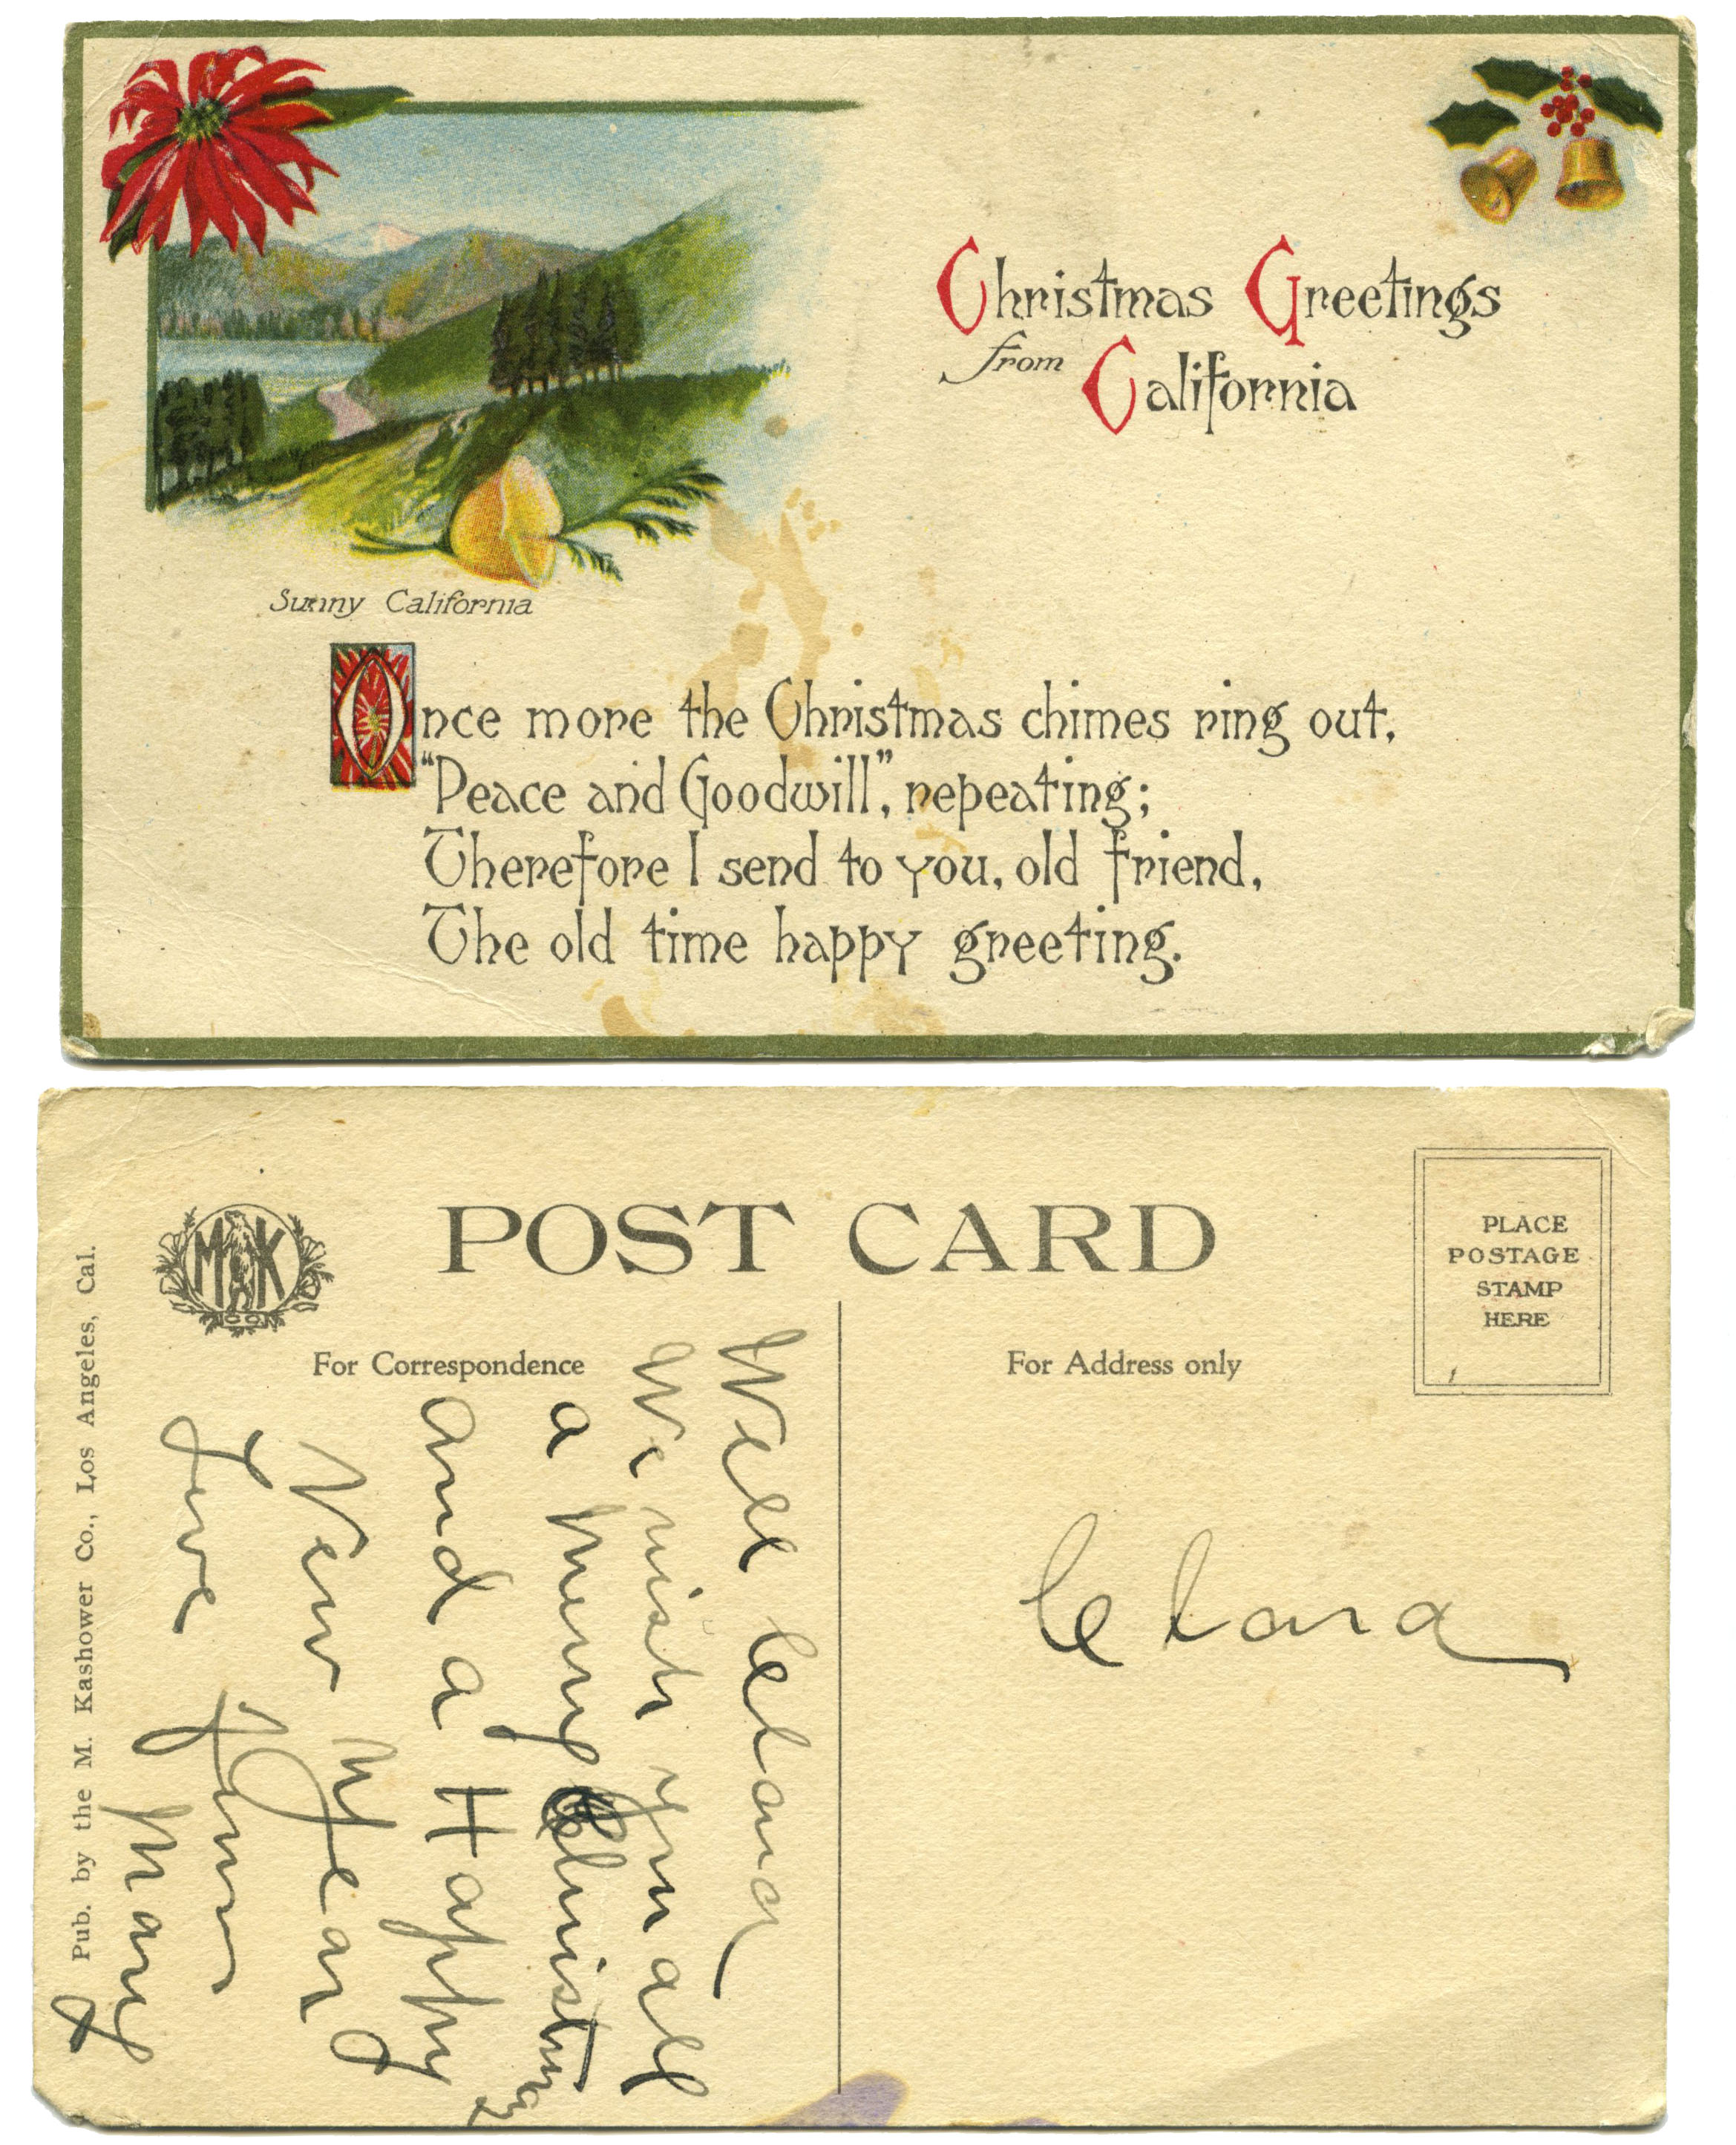 Christmas Greetings
from California
Sunny California
Once more the Christmas chimes ring out,
"Peace and Goodwill", repeating;
Therefore I send to you, old friend,
The old time happy greeting.
POST CARD
M K
PLACE
POSTAGE
STAMP
HERE
For Correspondence
For Address only
Pub. by the M. Kashower Co., Los Angeles, Cal.
Well Clara
We wish you all
a merry Christmas
and a Happy
New Year
Love from
Mary
Clara